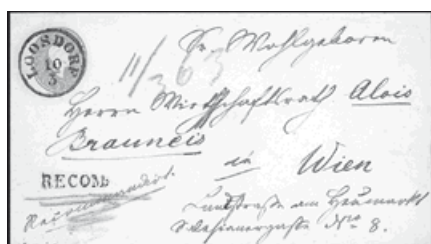 LOOSDORF
10
3
11/3 63
Sr. Wohlgeboren
Herrn Wirthschaftsrath Alois
Brauneis
in Wien
RECOM
Recommandirt.
Landstraße am Heumarkt
No 8.